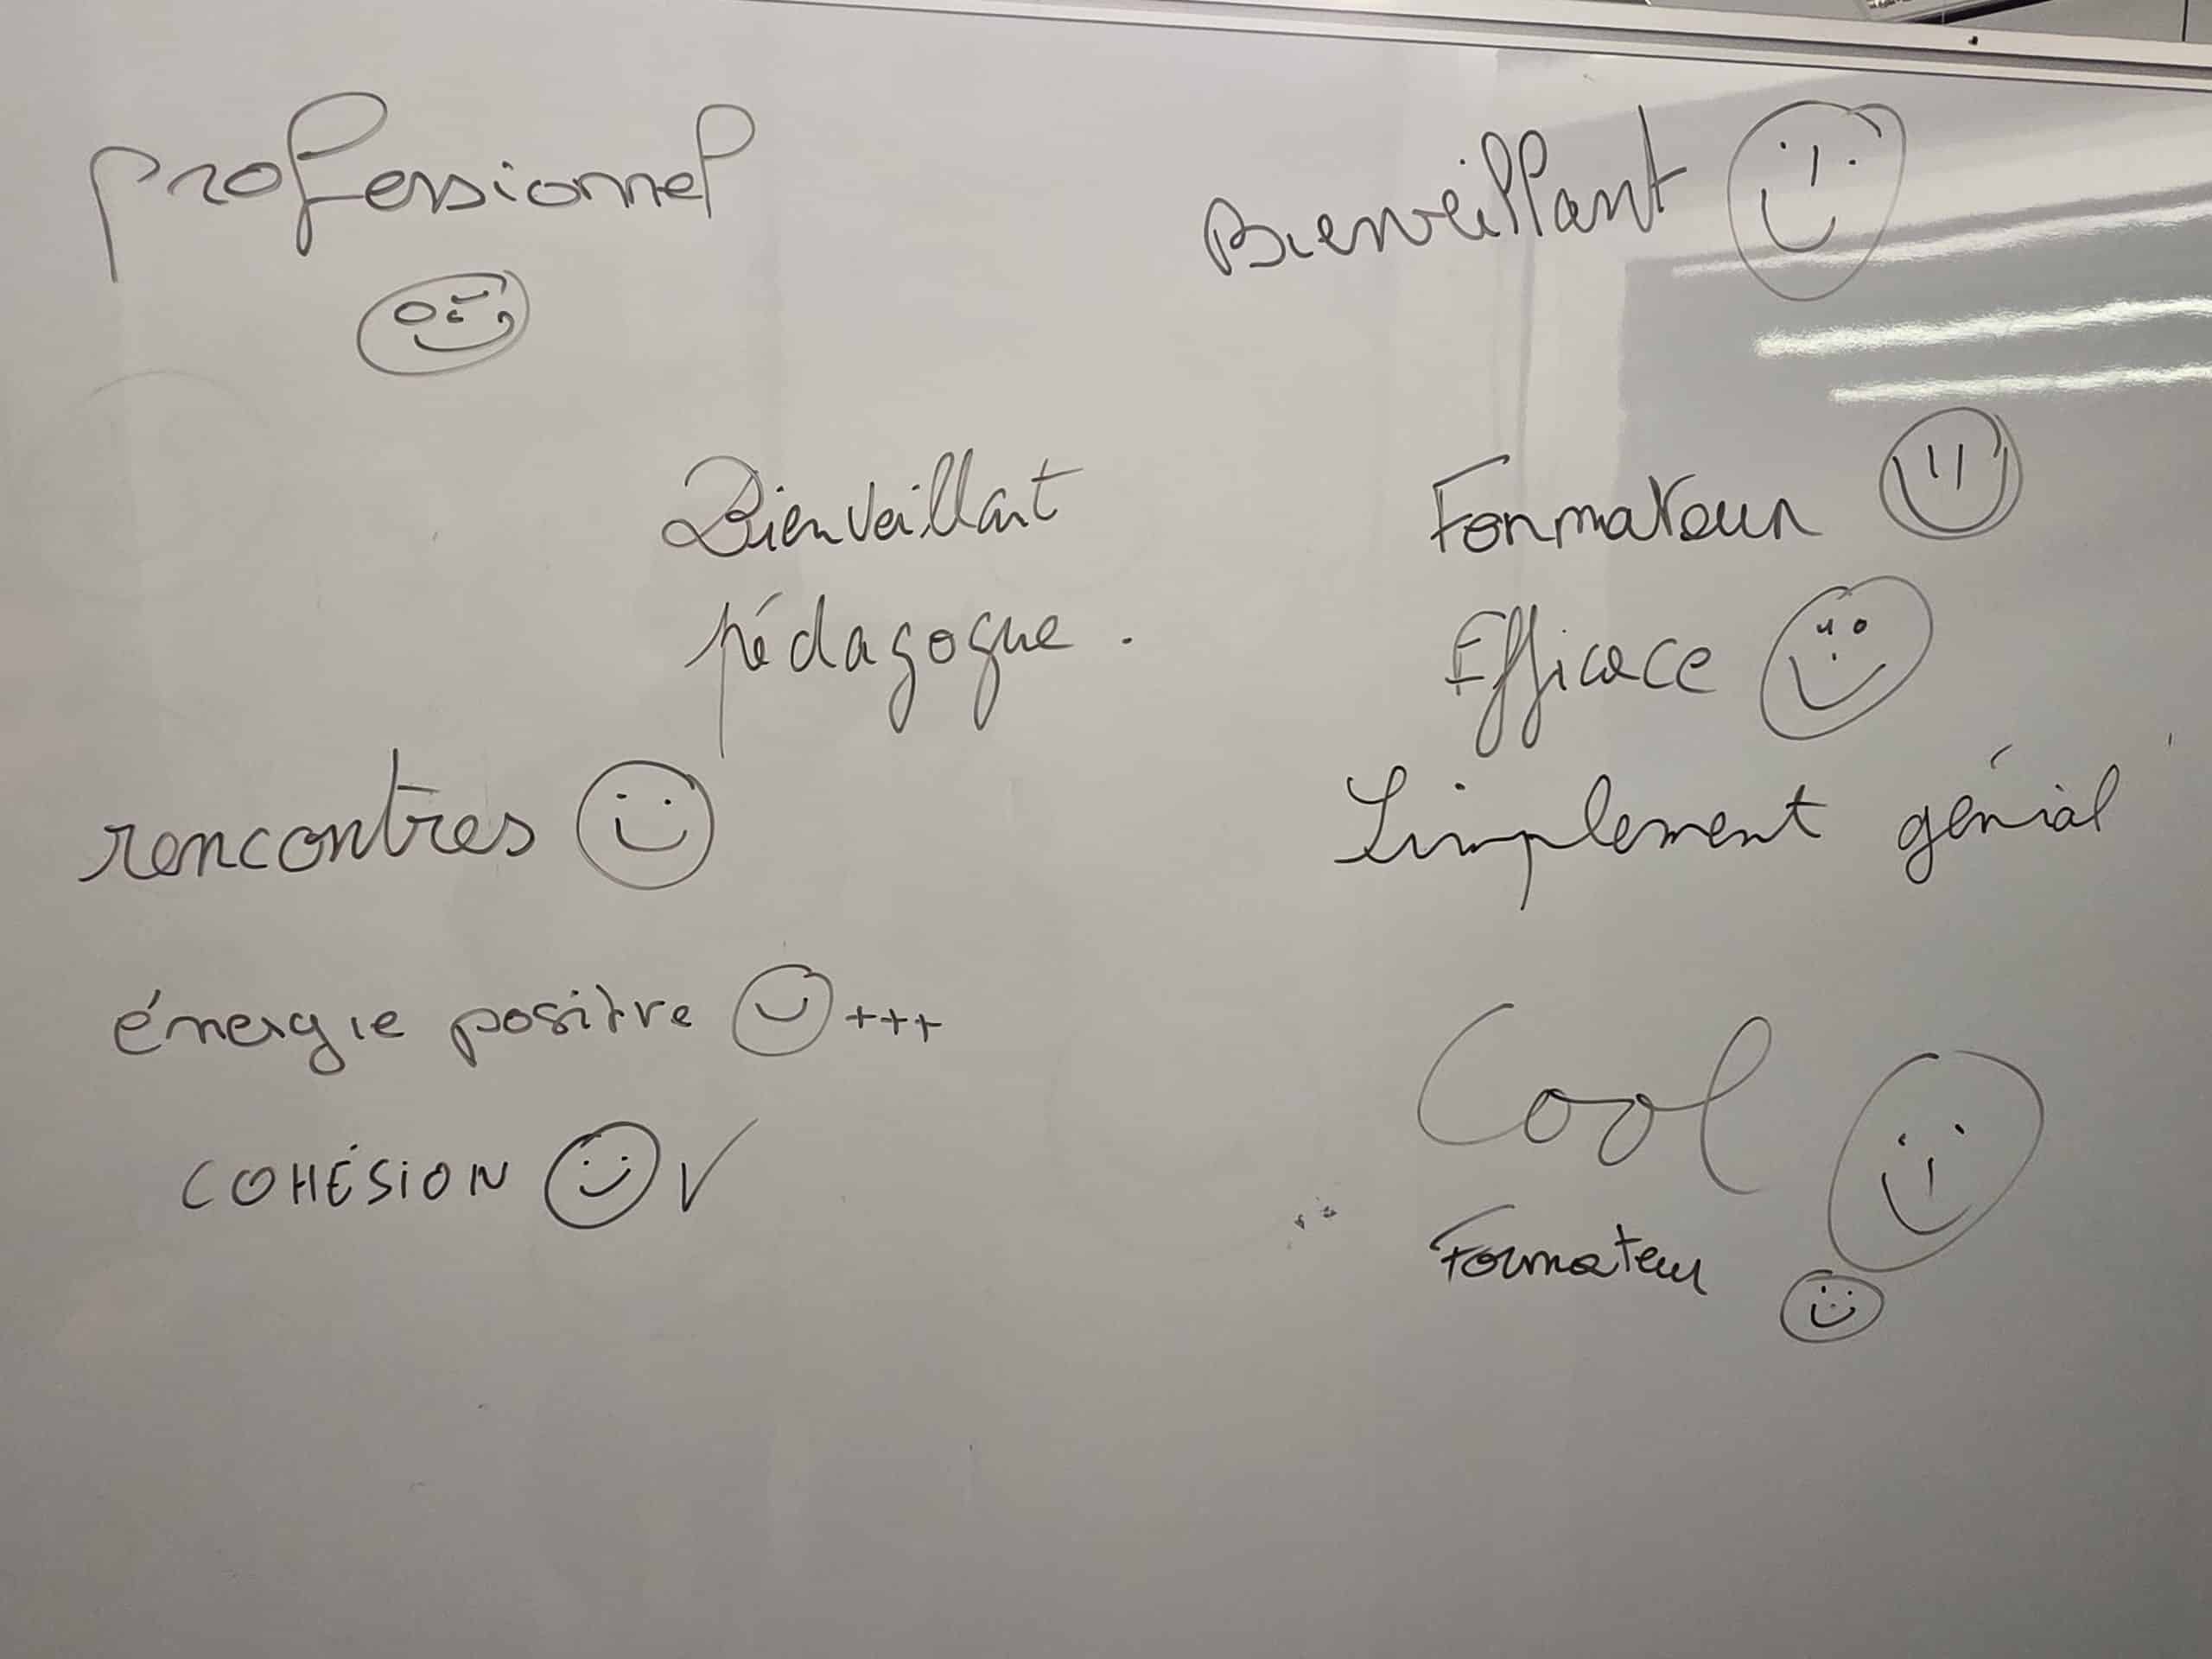 professionnel
Bienveillant
Bienveillant
pédagogue.
Formateur
Efficace
rencontres
Simplement génial
énergie positive +++
COHÉSION
Cool
Formateur